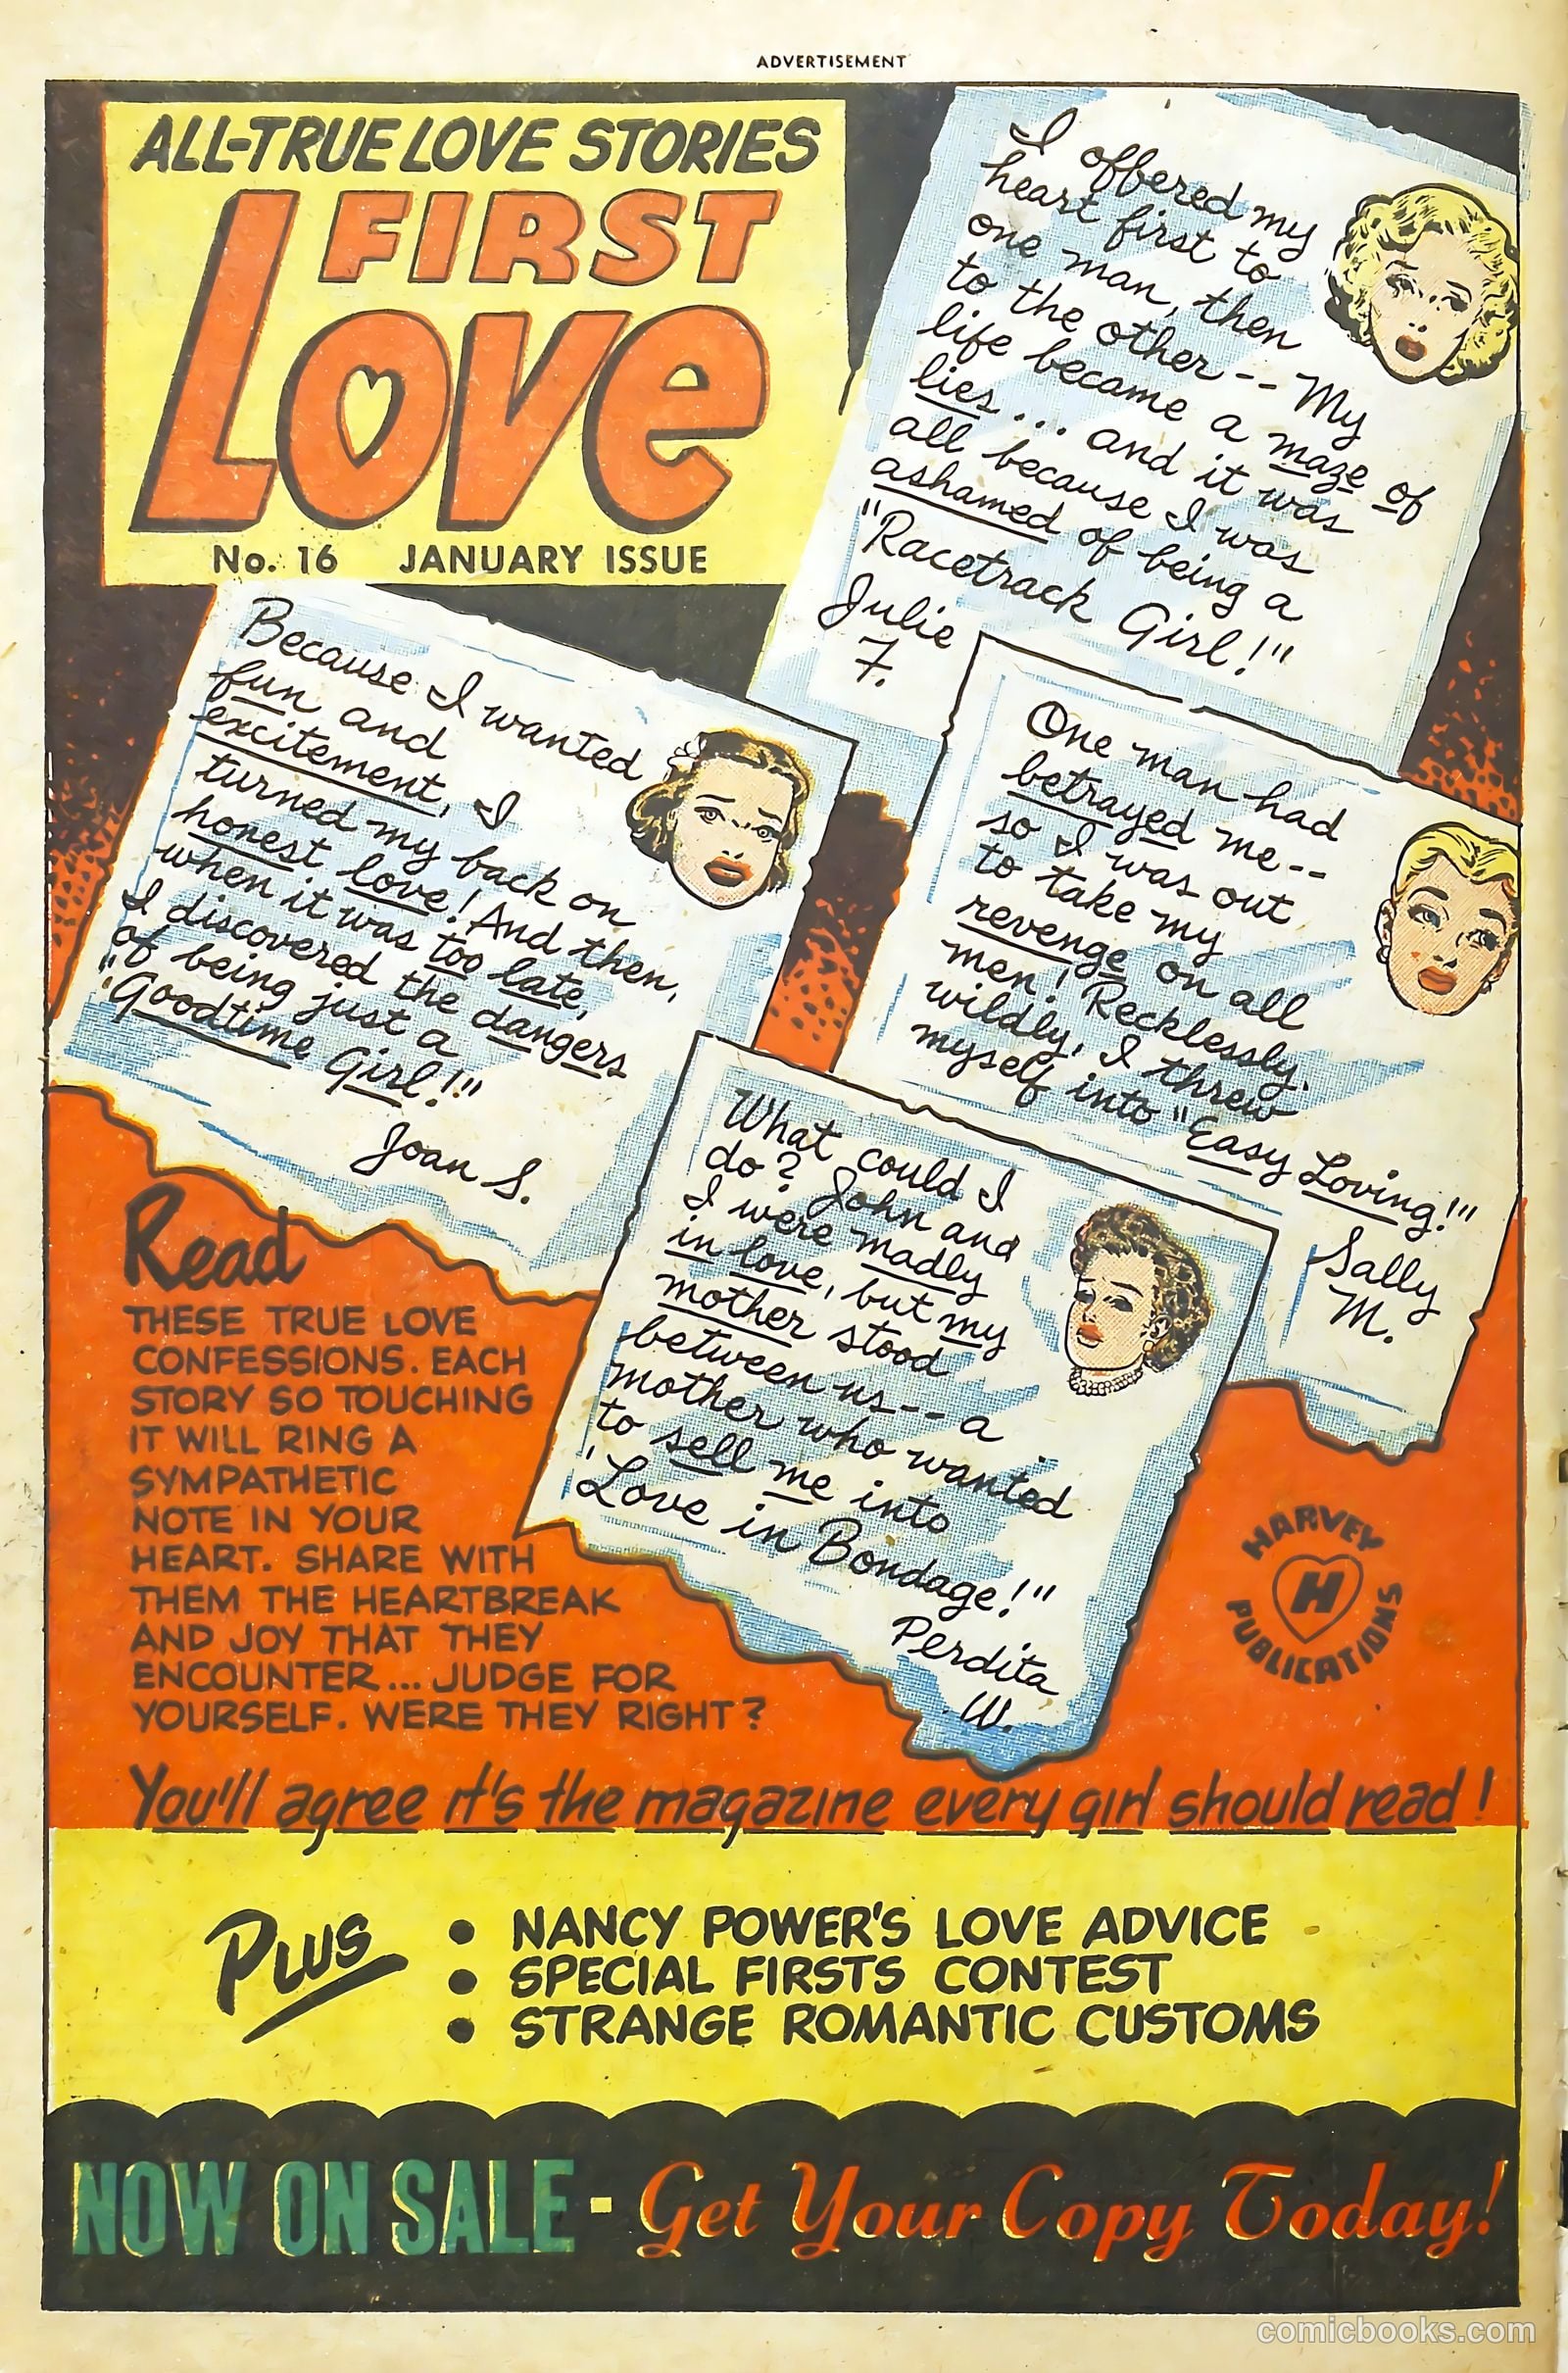 ADVERTISEMENT
ALL-TRUE LOVE STORIES
FIRST
LOVE
No. 16 JANUARY ISSUE
I offered my
heart first to
one man, then
to the other -- My
life became a maze of
lies ... and it was
all because I was
ashamed of being a
"Racetrack Girl!"
Julie
F.
Because I wanted
fun and
excitement, I
turned my back on
honest love! And then,
when it was too late,
I discovered the dangers
of being just a
"Goodtime Girl!"
Joan S.
One man had
betrayed me--
so I was out
to take my
revenge on all
men! Recklessly,
wildly, I threw
myself into "Easy Loving!"
Sally
M.
What could I
do? John and
I were madly
in love, but my
mother stood
between us -- a
mother who wanted
to sell me into
'Love in Bondage!"
Perdita
W.
Read
THESE TRUE LOVE
CONFESSIONS. EACH
STORY SO TOUCHING
IT WILL RING A
SYMPATHETIC
NOTE IN YOUR
HEART. SHARE WITH
THEM THE HEARTBREAK
AND JOY THAT THEY
ENCOUNTER... JUDGE FOR
YOURSELF. WERE THEY RIGHT?
HARVEY
H
PUBLICATIONS
You'll agree it's the magazine every girl should read!
PLUS
• NANCY POWER'S LOVE ADVICE
• SPECIAL FIRSTS CONTEST
• STRANGE ROMANTIC CUSTOMS
NOW ON SALE - Get Your Copy Today!
comicbooks.com